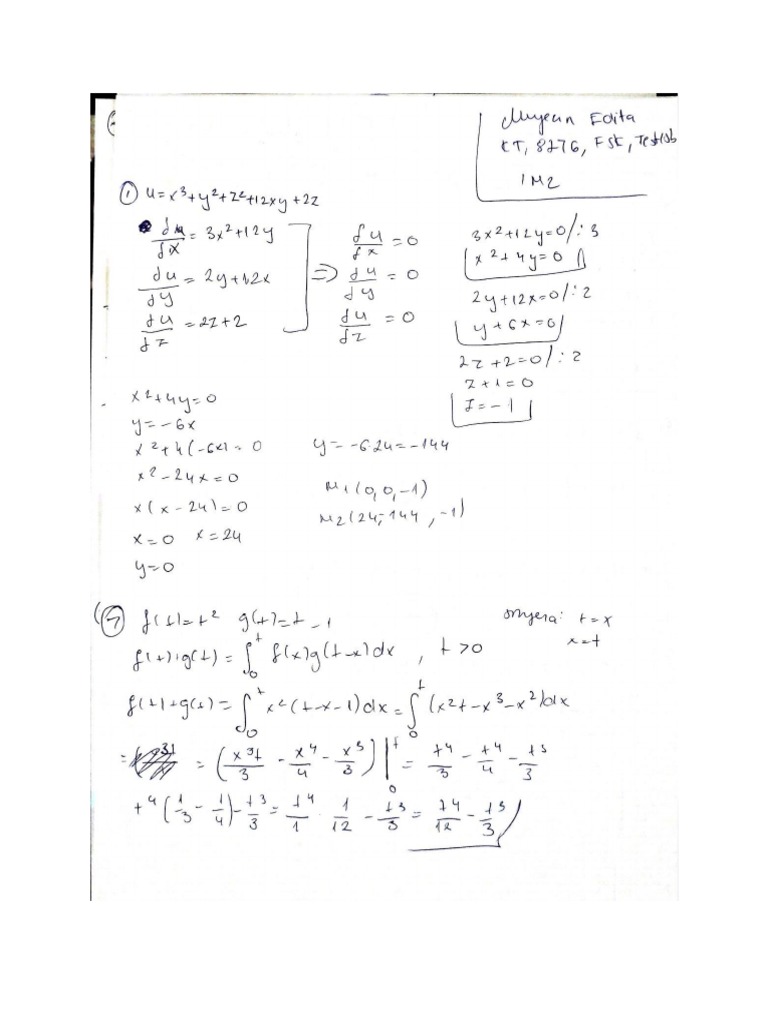 Edita
KT, 8276, FSK, Testlab
1M2
① u=x³+y²+z²+12xy+2z
du/dx = 3x²+12y
du/dy = 2y+12x
du/dz = 2z+2
⇒
du/dx = 0
du/dy = 0
du/dz = 0
3x²+12y=0/:3
x²+4y=0
2y+12x=0/:2
y+6x=0
2z+2=0/:2
z+1=0
z=-1
x²+4y=0
y=-6x
x²+4(-6x)=0
x²-24x=0
x(x-24)=0
x=0 x=24
y=0
y=-6·24=-144
M1(0,0,-1)
M2(24,-144,-1)
⑦ f(t)=t² g(t)=t-1
smjena: t=x
x=t
f(t)*g(t)=∫₀ᵗ f(x)g(t-x)dx, t>0
f(t)*g(t)=∫₀ᵗ x²(t-x-1)dx=∫₀ᵗ(x²t-x³-x²)dx
= (x³t/3 - x⁴/4 - x³/3)|₀ᵗ = t⁴/3 - t⁴/4 - t³/3
t⁴(1/3 - 1/4) - t³/3 = t⁴/1 · 1/12 - t³/3 = t⁴/12 - t³/3